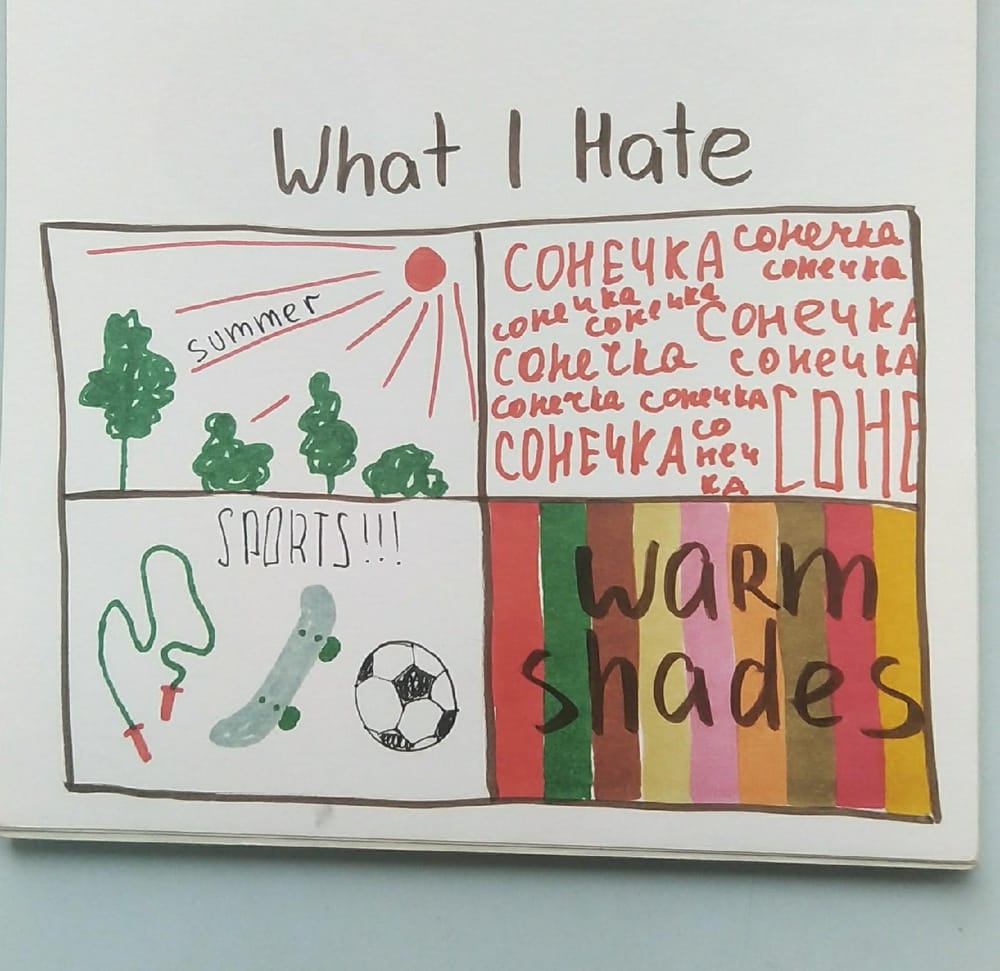 What I Hate
summer
СОНЕЧКА сонечка
сонечка
сонечка сонечка Сонечка
Сонечка сонечка
сонечка сонечка
СОНЕЧКА со
неч
ка
СОНЕ
SPORTS!!!
warm
shades